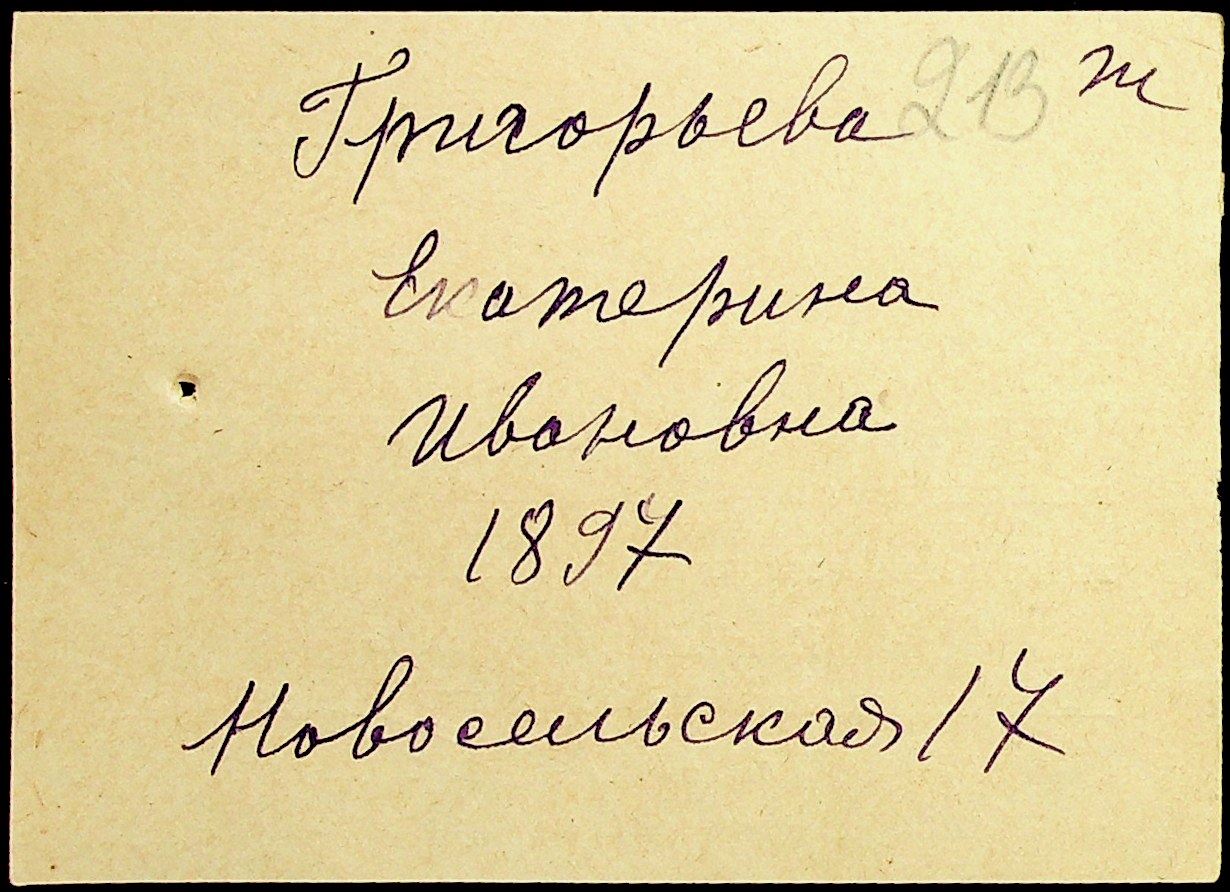 Григорьева 213 т
Екатерина
Ивановна
1897
Новосельская 17